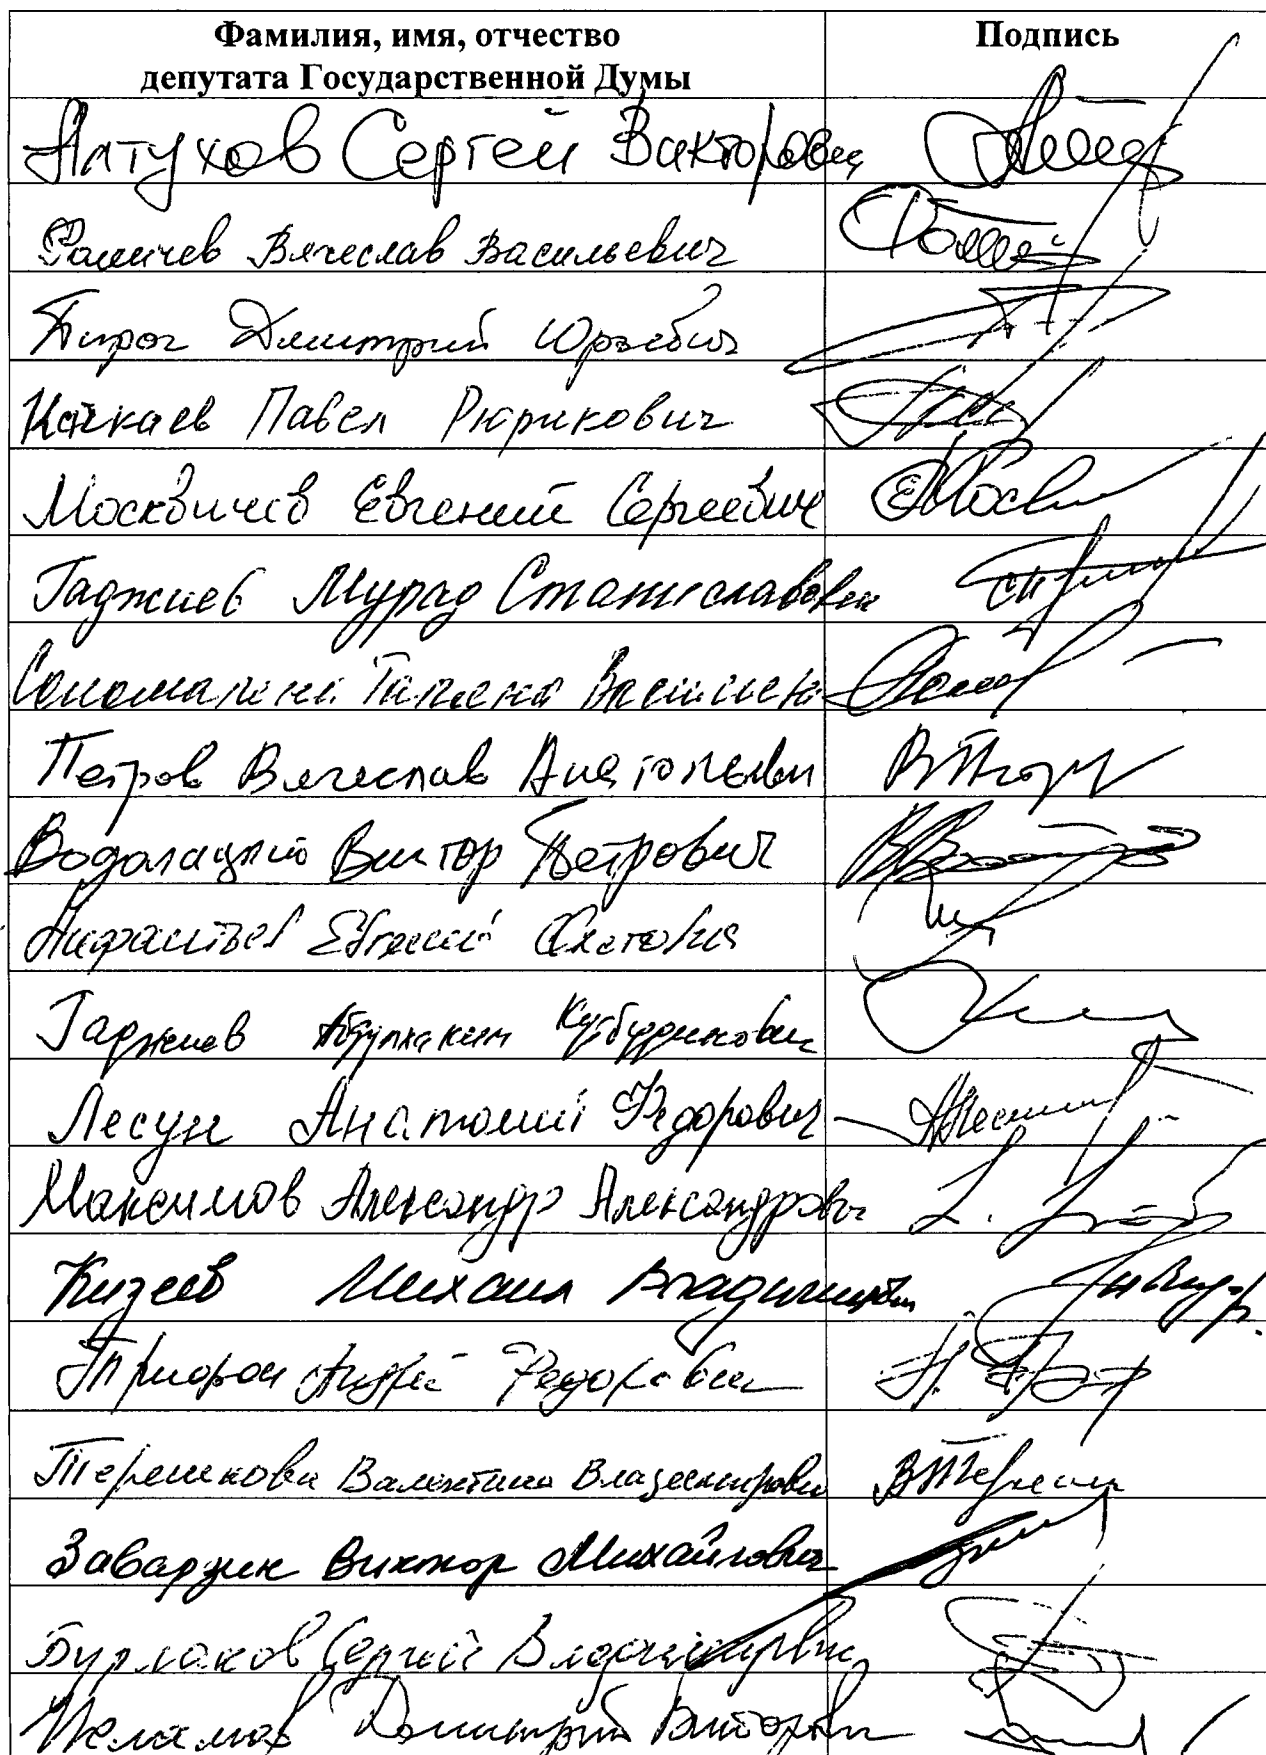 Фамилия, имя, отчество Подпись
депутата Государственной Думы
Алтухов Сергей Викторович
Фомичев Вячеслав Васильевич
Пирог Дмитрий Юрьевич
Качкаев Павел Рюрикович
Москвичев Евгений Сергеевич
Гаджиев Мурад Станиславович
Соломатина Татьяна Васильевн
Петров Вячеслав Анатольевич
Водолацкий Виктор Петрович
Нифантьев Евгений Олегович
Гаджиев Абдулхаким Кутбудинович
Лесун Анатолий Федорович
Максимов Александр Александрович
Кизеев Михаил Владимирович
Андрей Федорович
Терешкова Валентина Владимировна
Заварзин Виктор Михайлович
Бурлаков Сергей Владимирович
Исламов Дмитрий Викторович